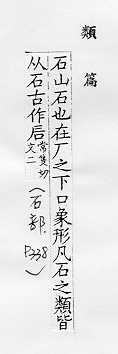 類篇
石山石也在厂之下口象形凡石之類皆
从石古作后常隻切文二(石部,P338)